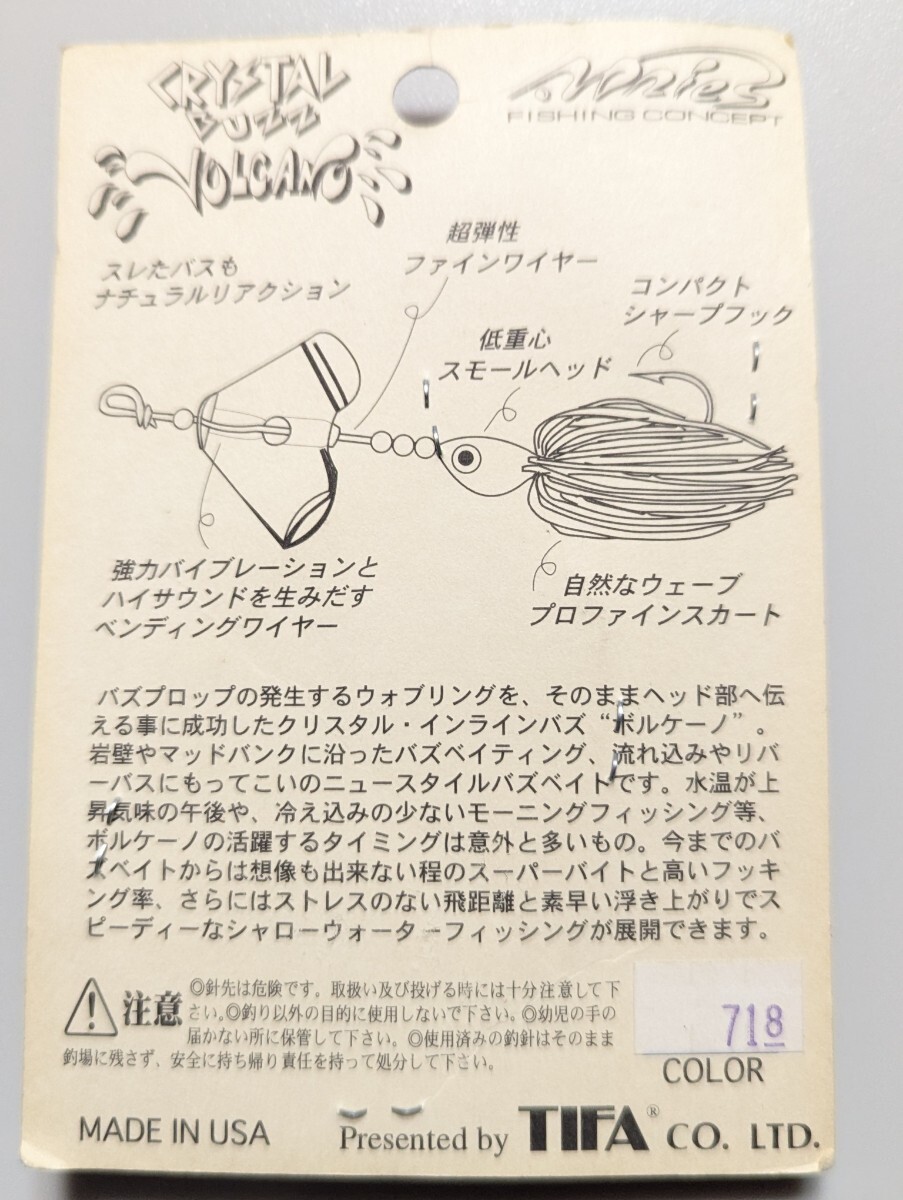 CRYSTAL
BUZZ
VOLCANO
FISHING CONCEPT
超弾性
ファインワイヤー
スレたバスも
ナチュラルリアクション
コンパクト
シャープフック
低重心
スモールヘッド
強力バイブレーションと
ハイサウンドを生みだす
ベンディングワイヤー
自然なウェーブ
プロファインスカート
バズプロップの発生するウォブリングを、そのままヘッド部へ伝
える事に成功したクリスタル・インラインバズ“ボルケーノ”。
岩壁やマッドバンクに沿ったバズベイティング、流れ込みやリバ
ーバスにもってこいのニュースタイルバズベイトです。水温が上
昇気味の午後や、冷え込みの少ないモーニングフィッシング等、
ボルケーノの活躍するタイミングは意外と多いもの。今までのバ
ズベイトからは想像も出来ない程のスーパーバイトと高いフッキ
ング率、さらにはストレスのない飛距離と素早い浮き上がりでス
ピーディーなシャローウォーターフィッシングが展開できます。
注意
◎針先は危険です。取扱い及び投げる時には十分注意して下
さい。◎釣り以外の目的に使用しないで下さい。◎幼児の手の
届かない所に保管して下さい。◎使用済みの釣針はそのまま
釣場に残さず、安全に持ち帰り責任を持って処分して下さい。
718
COLOR
MADE IN USA
Presented by TIFA® CO. LTD.